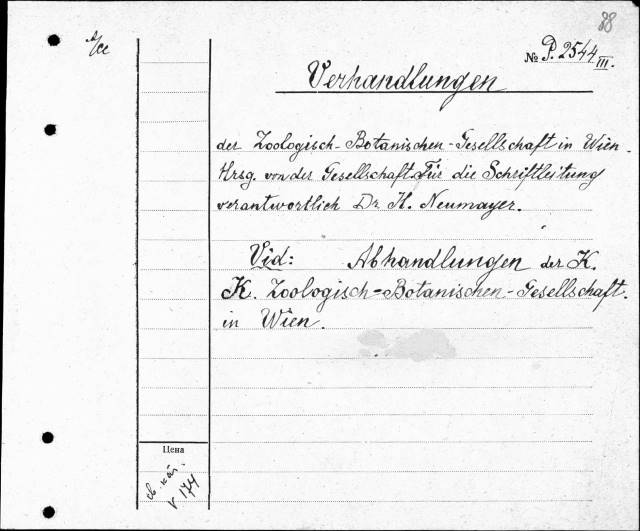 88
№ P. 2544 III.
Verhandlungen
der Zoologisch-Botanischen-Gesellschaft in Wien.
Hrsg. von der Gesellschaft Für die Schriftleitung
verantwortlich Dr H. Neumayer.
Vid: Abhandlungen der K.
K. Zoologisch=Botanischen-Gesellschaft.
in Wien.
Цена
V 174